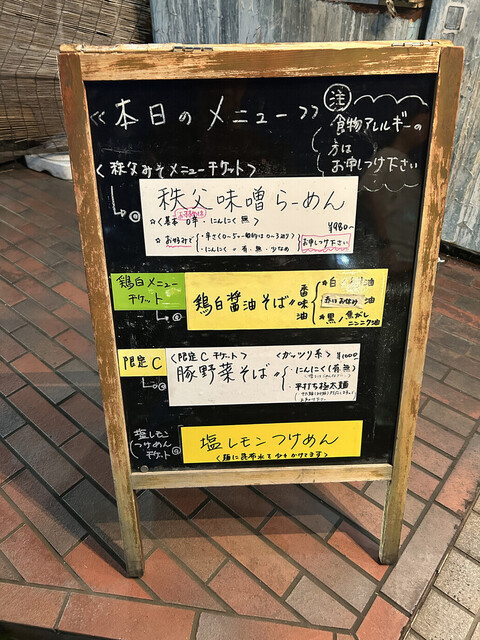 ≪本日のメニュー≫
注
食物アレルギーの
方は
お申しつけ下さい
<秩父みそメニューチケット>
秩父味噌らーめん
☆<基本 0辛・にんにく 無>
¥980~
☆お好みで
・辛さ(0~5 一般的は0~3辺り)
・にんにく = 有・無・少なめ
お申しつけ下さい
鶏白メニュー
チケット
鶏白醤油そば
香味油
赤はお休み
☆黒/焦がし
ニンニク油
限定C
<限定Cチケット>
<ガッツリ系>
¥1000
豚野菜そば
・にんにく(有・無)
・平打ち極太麺
塩レモン
つけめん
チケット
塩レモンつけめん
<麺に昆布水を少々かけてます>